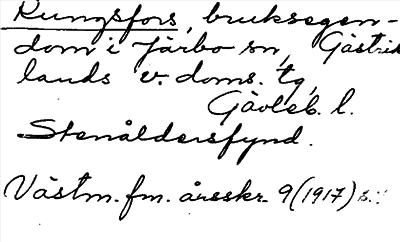 Kungsfors, bruksegen-
dom i Järbo sn, Gästrik
lands v. doms. tg,
Gävleb. l.
Stenåldersfynd.
Västm. fm. årsskr. 9 (1917) s.